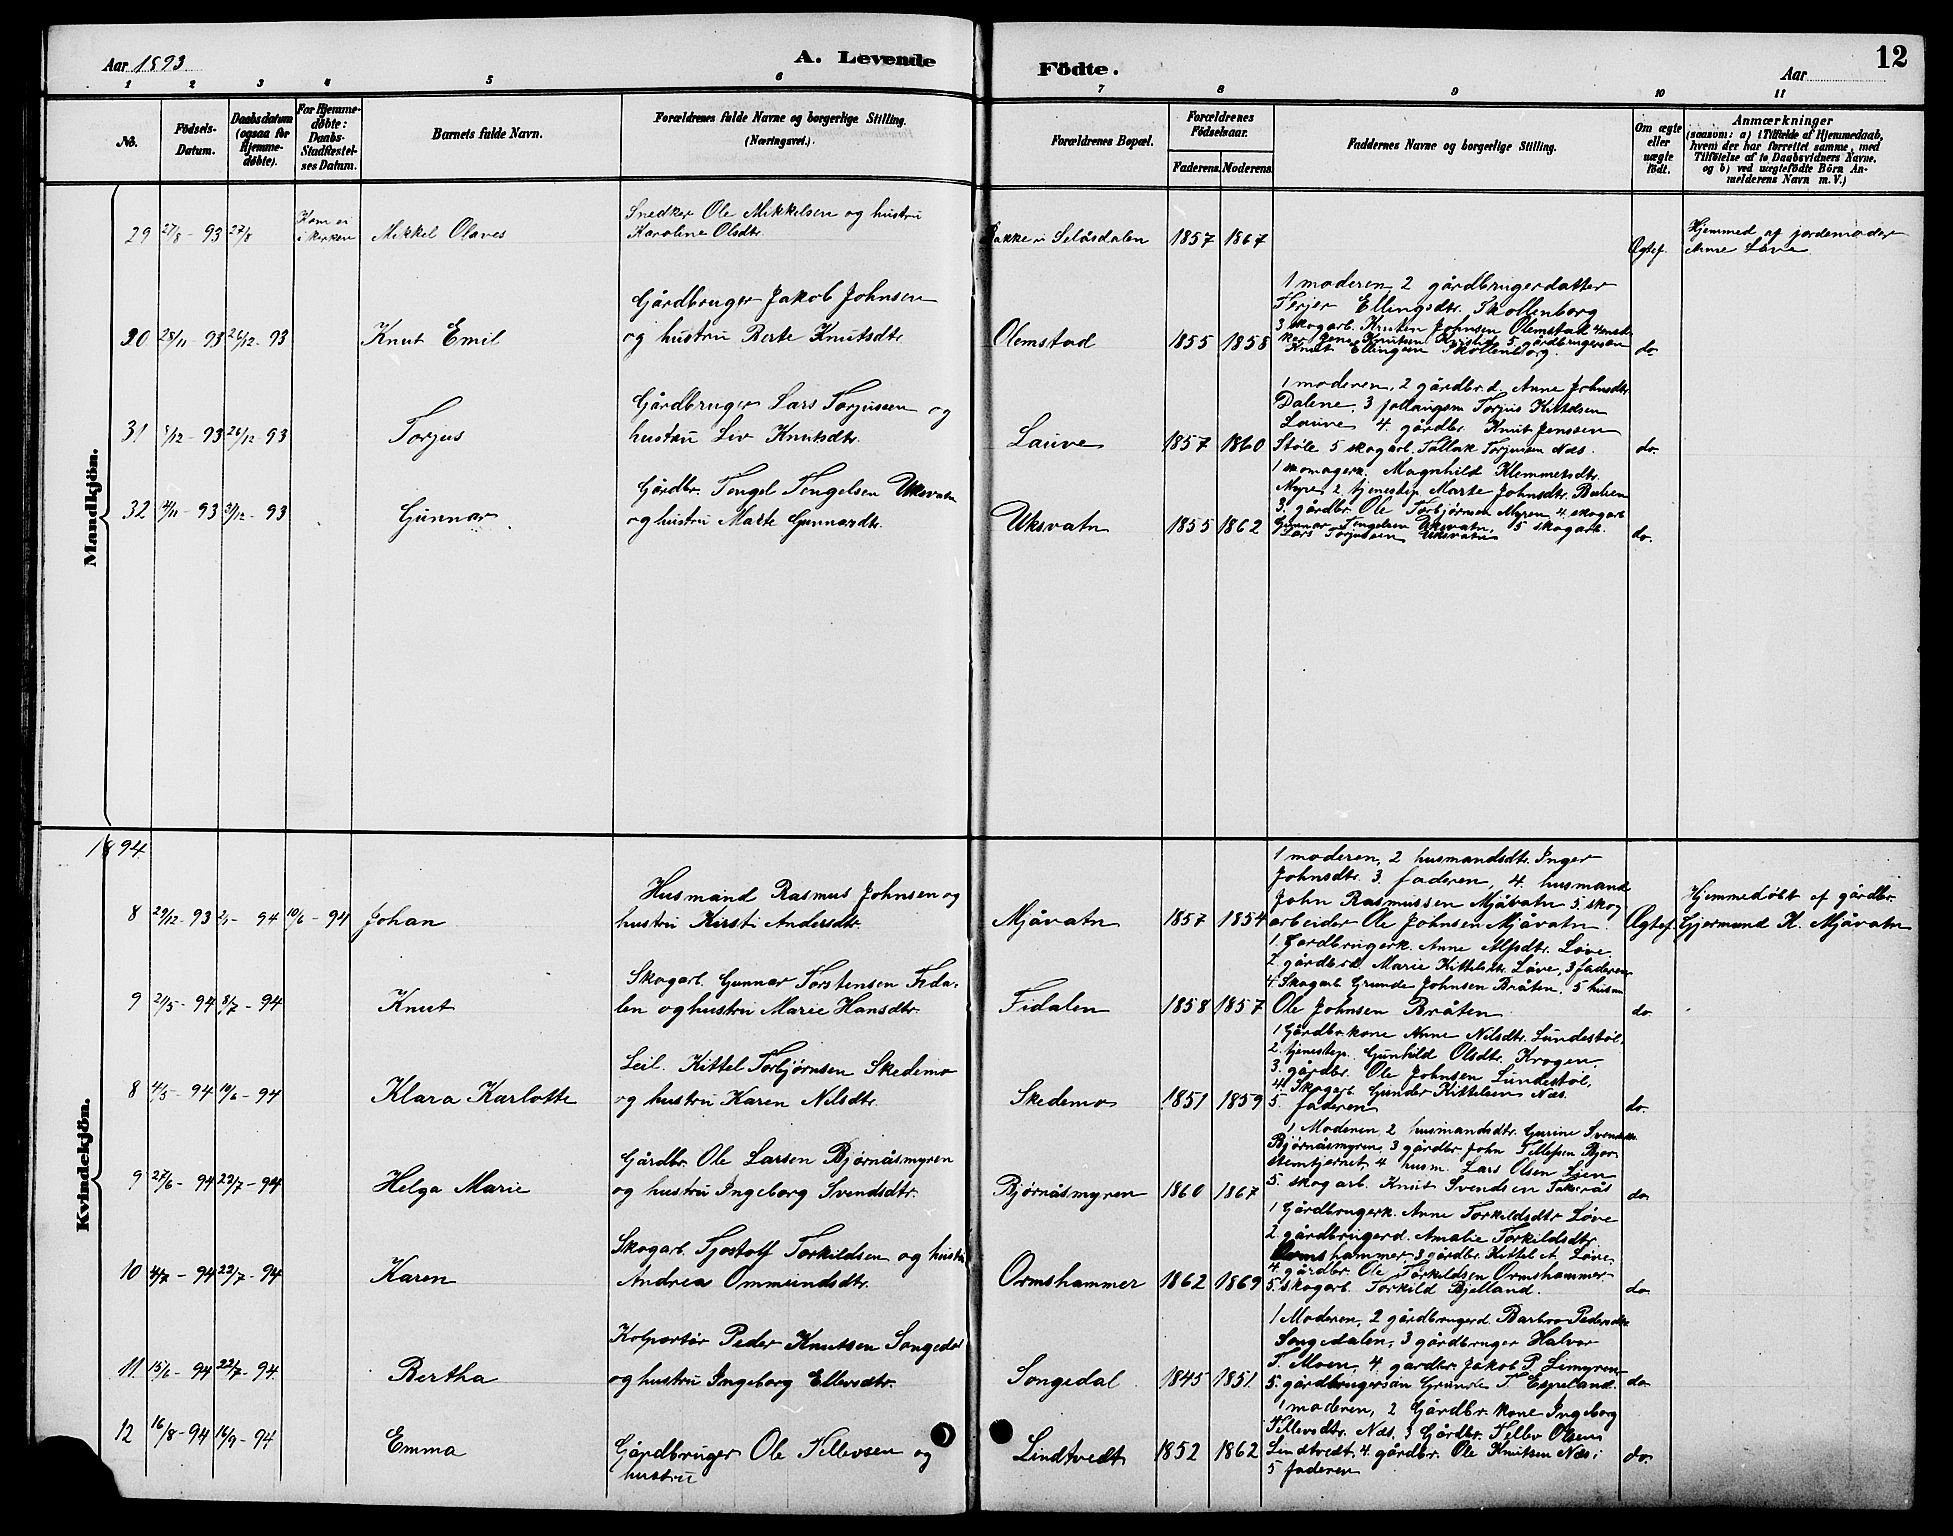 Aar 1893. A. Levende Födte. Aar 12
1 2 3 4 5 6 7 8 9 10 11
No. Födsels-Datum. Daabsdatum (ogsaa for Hjemme-døbte). For Hjemme-døbte: Daabs-Stadfæstel-ses Datum. Barnets fulde Navn. Forældrenes fulde Navne og borgerlige Stilling. (Næringsvei.) Forældrenes Bopæl. Forældrenes Födselsaar. Faderens. Moderens. Faddernes Navne og borgerlige Stilling. Om ægte eller uægte födt. Anmærkninger (saasom: a) i Tilfælde af Hjemmedaab, hvem der har forrettet samme, med Tilföielse af to Daabsvidners Navne, og b) ved uægtefödte Börn An-melderens Navn m. V.)
Mandkjön.
Snedker Ole Mikkelsen og hustru
29 27/8 - 93 27/8 Kom ei i kirken Mikkel Olaves Karoline Olsdtr. Bakke i Selåsdalen 1857 1867 Ogtef. Hjemmed. af jordemoder
Anne Lave
1 moderen, 2 gårdbrugerdatter
Gårdbruger Jakob Johnsen Terjer Ellingsdtr. Skollenborg
3 skogarb. Kristen Johnsen Olemstad
30 28/11 - 93 26/12 - 93 Knut Emil og hustru Berte Knutsdtr Olemstad 1855 1858 5 gårdbrugersøn
Knut Ellingsen Skollenborg. do.
1 moderen, 2 gårdbr. d. Anne Johnsdtr
Gårdbruger Lars Torjussen og Dalene, 3 Torjus Kittelsen
Lauve 4 gårdbr. Knut Jenssen
31 /12 - 93 26/12 93 Torjus hustru Liv Knutsdtr. Lauve 1857 1860 Støle 5 skogarb. Tallak Torjussen Næs. do.
1 skomagerk. Magnhild Klemmetsdtr.
Gårdbr. Tengel Tengelsen Uksvatn Myre, 2 tjenestep. Marte Johnsdtr.
3. gårdbr Ole Torbjørnsen Myren 4. skogarb
32 4/11 - 93 /12 - 93 Gunnar og hustru Marte Gunnardtr. Uksvatn 1855 1862 Gunnar Tengelsen Uksvatn, 5 skogarb.
Lars Torjussen Uksvatn do.
1894
1 moderen, 2 husmandsdtr. Inger
Husmand Rasmus Johnsen og Johnsdtr. 3. faderen, 4. husmand
John Rasmussen Mjåvatn 5. skog Hjemmedøbt af gårdbr.
8 29/12 - 93 - 94 10/6 - 94 Johan hustru Kirsti Andersdtr. Mjåvatn 1857 1854 arbeider Ole Johnsen Mjåvatn. Ogtef. Gjermund K. Mjåvatn
1. Gårdbrugerk. Anne Alfsdtr. Løve,
Skogarb. Gunnar Torstensen Fida- 2. gårdbr.d. Marie Kittelsdtr. Løve, 3 faderen
4. Skogarb Grunde Johnsen Bråten, 5 husm
9 21/5 - 94 8/7 - 94 Knut len og hustru Marie Hansdtr. Fidalen 1858 1857 Ole Johnsen Bråten do.
Kvindekjön.
1 Gårdbr. kone Anne Nilsdtr. Lundestøl,
Leil. Kittel Torbjørnsen Skedemo 2. tjenestep. Gunhild Olsdtr. Krogen,
3. gårdbr. Ole Johnsen Lundestøl,
8 4/5 - 94 10/6 - 94 Klara Karlotte og hustru Karen Nilsdtr. Skedemo 1851 1859 4. Skogarb Gunder Kittelsen Næs.
5. faderen do.
1. Moderen, 2 husmandsdtr. Gurine Svendsdtr.
Gårdbr. Ole Larsen Bjørnåsmyren Bjørnåsmyren, 3 gårdbr John Tellefsen Bjor-
stemtjernet 4 husm. Lars Olsen Lien
9 27/6 - 94 22/7 - 94 Helga Marie og hustru Ingeborg Svendsdtr. Bjørnåsmyren 1860 1867 5. skogarb. Knut Svendsen do.
1 Gårdbrugerk. Anne Torkildsdtr Løve
Skogarb. Tjostolf Torkildsen og hustru 2. gårdbrugerd. Amalie Torkildsdtr.
Ormshammer 3 gårdbr. Kittel A. Løve,
10 4/7 - 94 22/7 - 94 Karen Andrea Ommundsdtr. Ormshammer 1862 1869 4. gårdbr. Ole Torkildsen Ormshammer
5. skogarb. Torkild Bjelland. do
1 Moderen, 2 gårdbrugerd Barbro Pedersdtr
Kolportør Peder Knutsen Songedal Songedalen, 3 gårdbruger Halvor
T. Moen, 4. gårdbr. Jakob P. Limyren
11. 15/6 - 94 22/7 - 94 Bertha og hustru Ingeborg Ellevsdtr. Songedal 1845 1851 5. gårdbrugersøn Grunde T. Espeland. do.
1 moderen, 2 Gårdbr. kone Ingeborg
Tellevsdtr. Næs, 3 Gårdbr. Tellev Olsen
12 16/8 - 94 16/9 - 94 Emma Gårdbruger Ole Tellevsen og Lindtvedt 1852 1862 Lindtvedt 4. gårdbr. Ole Knutsen Næs;
hustru 5 faderen do.